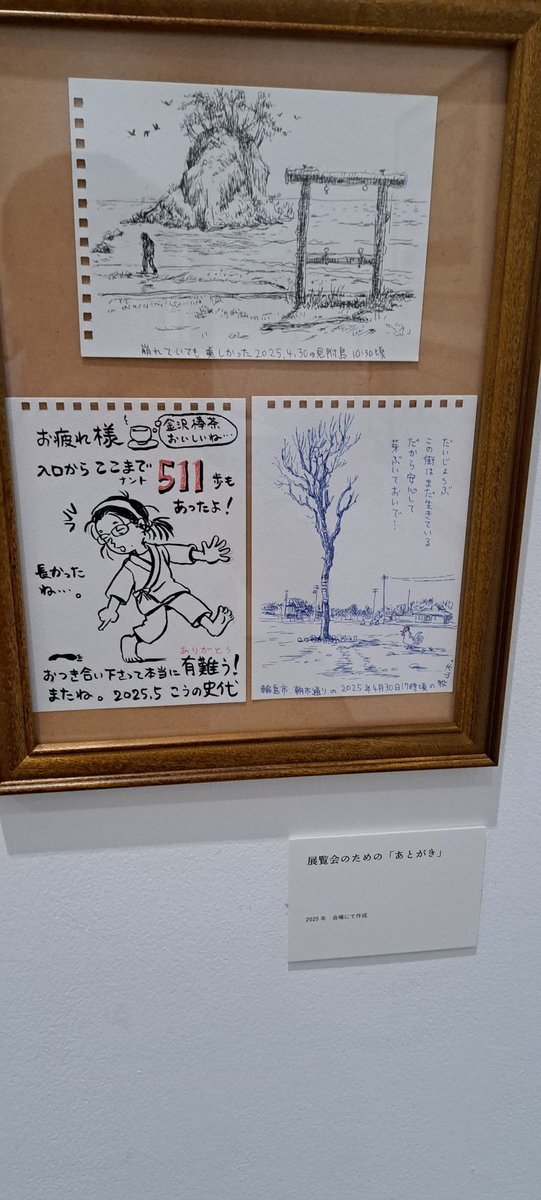 崩れていても美しかった2025.4.30の見附島 10:30頃
お疲れ様
金沢棒茶
おいしいね…
入口からここまで
ナント
511歩も
あったよ!
長かった
ね…。
ありがとう
おつき合い下さって本当に有難う!
またね。2025.5 こうの史代
だいじょうぶ
この街はまだ生きている
だから安心して
芽ぶいておいで…
輪島市、朝市通りの2025年4月30日17時頃の
展覧会のための「あとがき」
2025年 会場にて作成